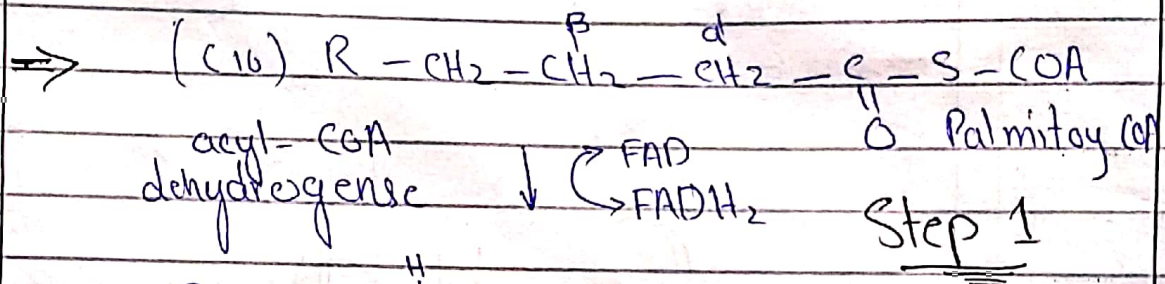 β α
⇒ (C16) R – CH2 – CH2 – CH2 – C – S – COA
||
O Palmitoy COA
acyl-COA FAD
dehydrogense ↓ FADH2 Step 1
H